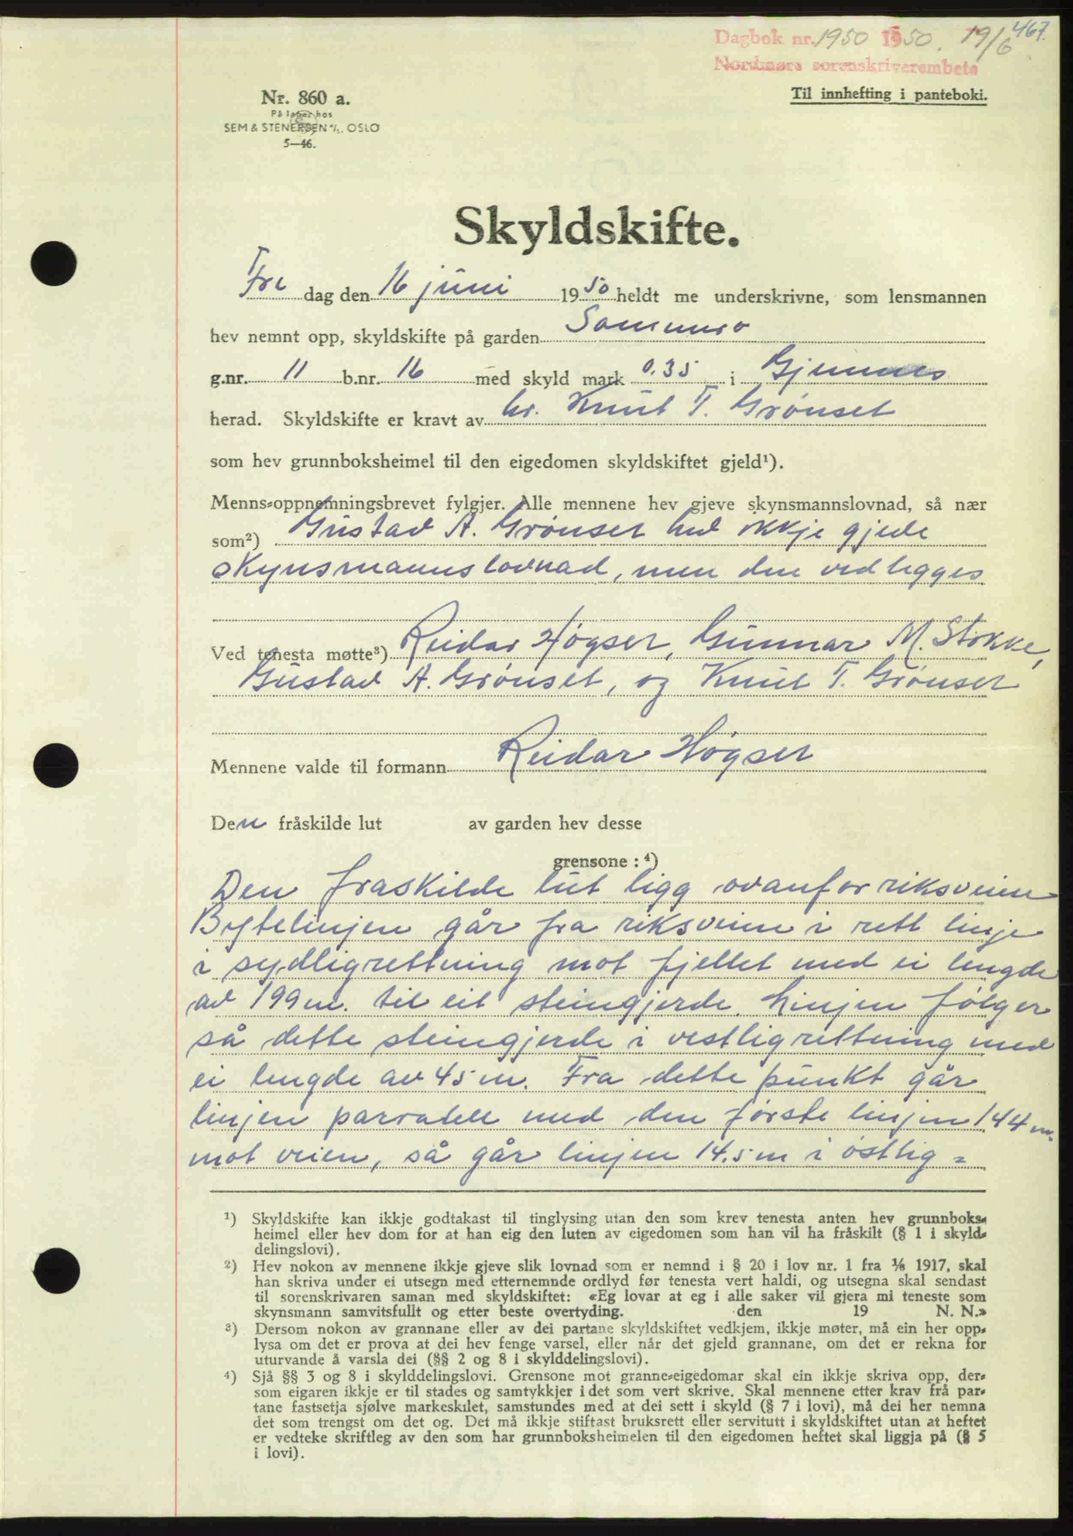 467.
Dagbok nr. 1950 1950. 19/6
Nordmøre sorenskriverembete
Til innhefting i panteboki.
Nr. 860 a.
På lager hos
SEM & STENERSEN A/S. OSLO
5—46.
Skyldskifte.
Fre dag den 16 juni 1950 heldt me underskrivne, som lensmannen
hev nemnt opp, skyldskifte på garden
g.nr. 11 b.nr. 16 med skyld mark 0.35 i Gjemnes
herad. Skyldskifte er kravt av hr. Knut T. Grønset
som hev grunnboksheimel til den eigedomen skyldskiftet gjeld¹).
Menns-oppnemningsbrevet fylgjer. Alle mennene hev gjeve skynsmannslovnad, så nær
som²) Gustav A. Grønset hev ikkje gjeve
skynsmannslovnad, men den vedlegges
Ved tenesta møtte³) Reidar Høgset, Gunnar M. Stokke,
Gustav A. Grønset, og Knut T. Grønset
Mennene valde til formann Reidar Høgset
Den fråskilde lut av garden hev desse
grensone : ⁴)
Den fraskilde lut ligg ovanfor riksveien
Bytelinjen går fra riksveien i rett linje
i sydligrettning mot fjellet med ei lengde
av 199 m. til eit steingjerde. Linjen følger
så dette steingjerde i vestligrettning med
ei lengde av 45 m. Fra dette punkt går
linjen paralell med den første linjen 144 m.
mot veien, så går linjen 14.5 m i østlig =
¹) Skyldskifte kan ikkje godtakast til tinglysing utan den som krev tenesta anten hev grunnboks-
heimel eller hev dom for at han eig den luten av eigedomen som han vil ha fråskilt (§ 1 i skyld-
delingslovi).
²) Hev nokon av mennene ikkje gjeve slik lovnad som er nemnd i § 20 i lov nr. 1 fra 1/6 1917, skal
han skriva under ei utsegn med etternemnde ordlyd før tenesta vert haldi, og utsegna skal sendast
til sorenskrivaren saman med skyldskiftet: «Eg lovar at eg i alle saker vil gjera mi teneste som
skynsmann samvitsfullt og etter beste overtyding. den 19 N. N.»
³) Dersom nokon av grannane eller av dei partane skyldskiftet vedkjem, ikkje møter, må ein her opp-
lysa om det er prova at dei hev fenge varsel, eller når det gjeld grannane, om det er rekna for
uturvande å varsla dei (§§ 2 og 8 i skylddelingslovi).
⁴) Sjå §§ 3 og 8 i skylddelingslovi. Grensone mot granne-eigedomar skal ein ikkje skriva opp, der-
som eigaren ikkje er til stades og samtykkjer i det som vert skrive. Skal mennene etter krav frå par-
tane fastsetja sjølve markeskilet, samstundes med at dei sett i skyld (§ 7 i lovi), må dei her nemna
det som trengst om det og. Det må ikkje stiftast bruksrett eller servitutt i skyldskiftet utan at heftet
er vedteke skriftleg av den som har grunnboksheimelen til den eigedomen heftet skal liggja på (§ 5
i lovi).